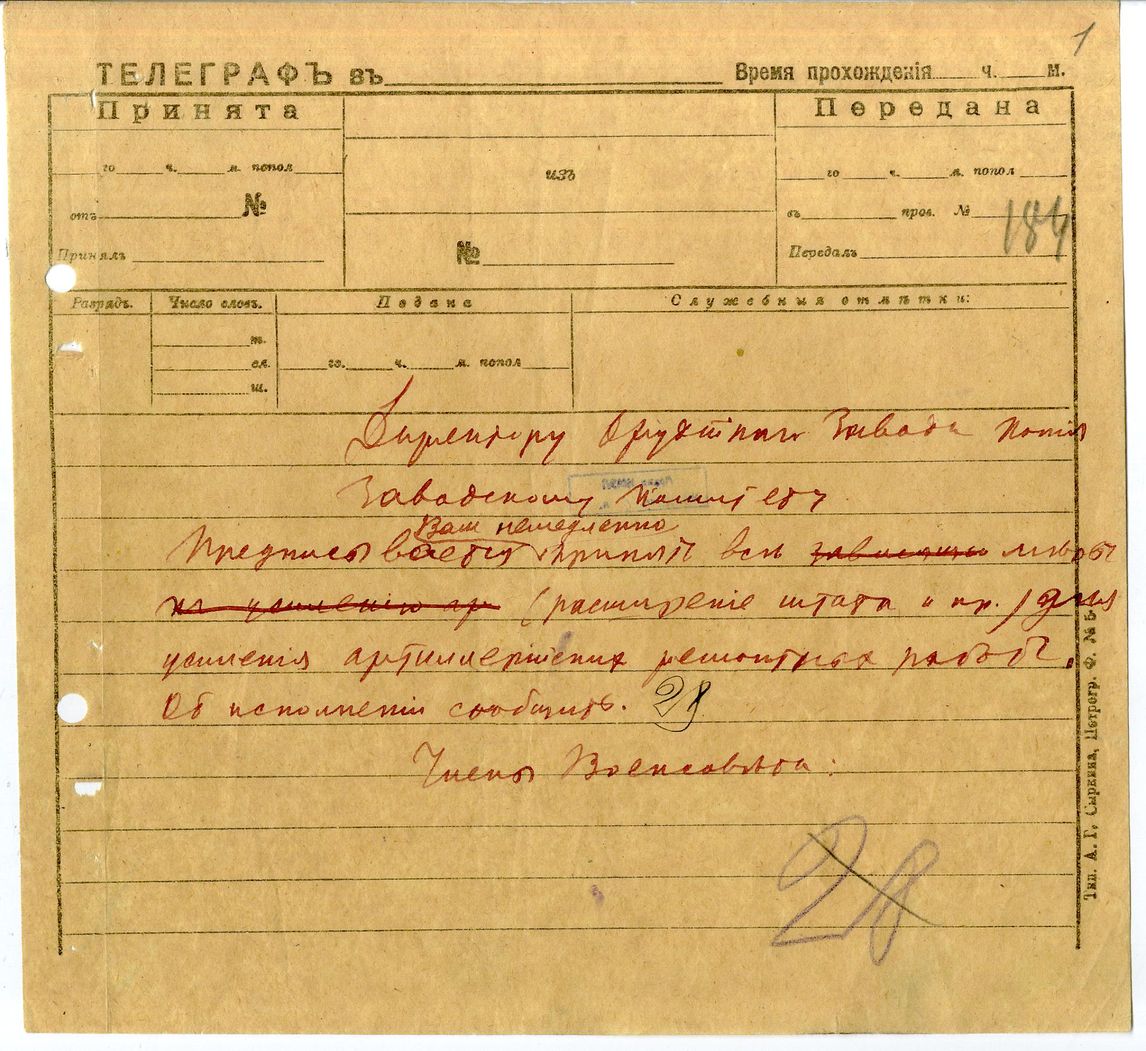 1
ТЕЛЕГРАФЪ въ
Время прохожденія ч. м.
Принята
го ч. м. попол
отъ №
Принялъ
изъ
№
Передана
го ч. м. попол
въ пров. №
184
Передалъ
Разрядъ.
Число словъ.
т.
сл.
ш.
Подана
го. ч. м. попол
Служебныя отмѣтки:
Директору Орудійнаго Завода копія
Заводскому Комитету
Вам немедленно
Предписывается принять все зависящие меры
по усилению ар (расширеніе штата и пр.) для
усиленія артиллерійских ремонтных работ.
Об исполненіи сообщить. 28
Члены Военсовета:
28
Тип. А. Г. Сыркина, Петрогр. Ф. № 5